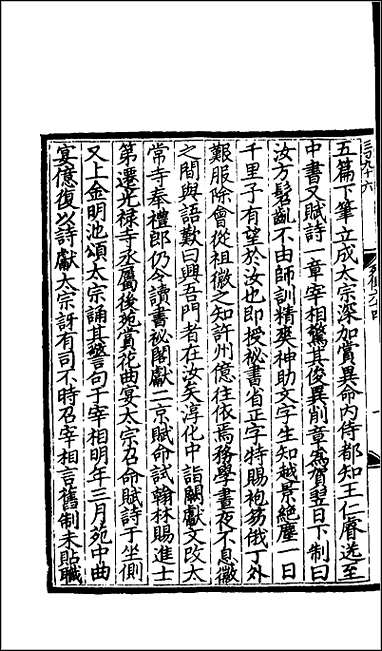 三百九十六
五篇下筆立成太宗深加賞異命內侍都知王仁睿送至
中書又賦詩一章宰相驚其俊異削章為賀翌日下制曰
汝方髫齓不由師訓精爽神助文字生知越景絕塵一日
千里予有望於汝也即授祕書省正字特賜袍笏俄丁外
艱服除會從祖徽之知許州億往依焉務學晝夜不息徽
之間與語歎曰興吾門者在汝矣淳化中詣闕獻文改太
常寺奉禮郎仍令讀書祕閣獻二京賦命試翰林賜進士
第遷光祿寺丞屬後苑賞花曲宴太宗召命賦詩于坐側
又上金明池頌太宗誦其警句于宰相明年三月苑中曲
宴億復以詩獻太宗訝有司不時召宰相言舊制未貼職